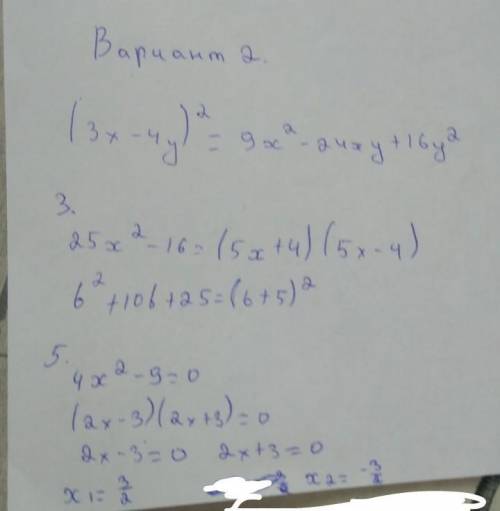 Вариант 2.
(3x - 4y)² = 9x² - 24xy + 16y²
3.
25x² - 16 = (5x + 4)(5x - 4)
b² + 10b + 25 = (b + 5)²
5.
4x² - 9 = 0
(2x - 3)(2x + 3) = 0
2x - 3 = 0 2x + 3 = 0
x1 = 3/2 x2 = -3/2